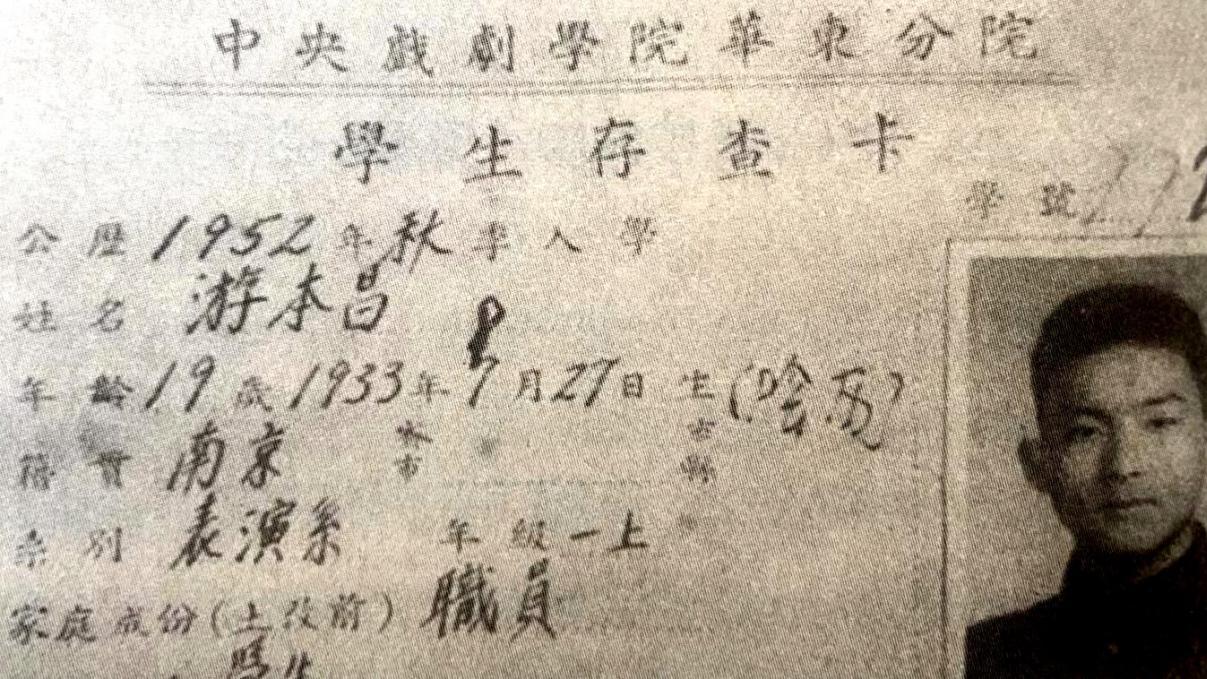 中央戲劇學院華東分院
學生存查卡
學號
公歷1952年秋季入學
姓名 游本昌
年齡19歲1933年9月27日生(陰历)
籍貫 南京 市 市縣
系別 表演系 年級一上
家庭成份(土改前) 職員